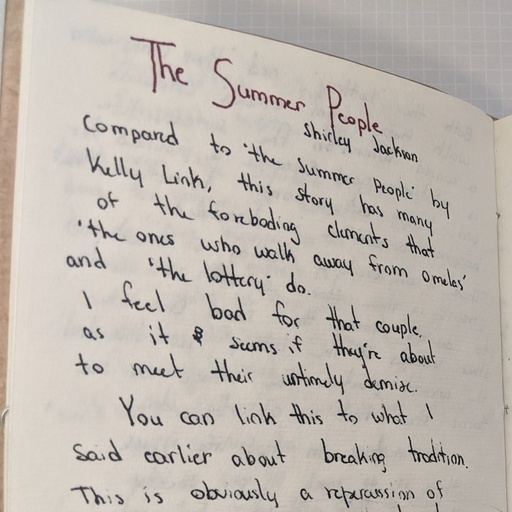 The Summer People
Shirley Jackson
Compared to 'the summer people' by
Kelly Link, this story has many
of the foreboding elements that
'the ones who walk away from omelas'
and 'the lottery' do.
I feel bad for that couple,
as it seems if they're about
to meet their untimely demise.
You can link this to what I
said earlier about breaking tradition.
This is obviously a repurcussion of